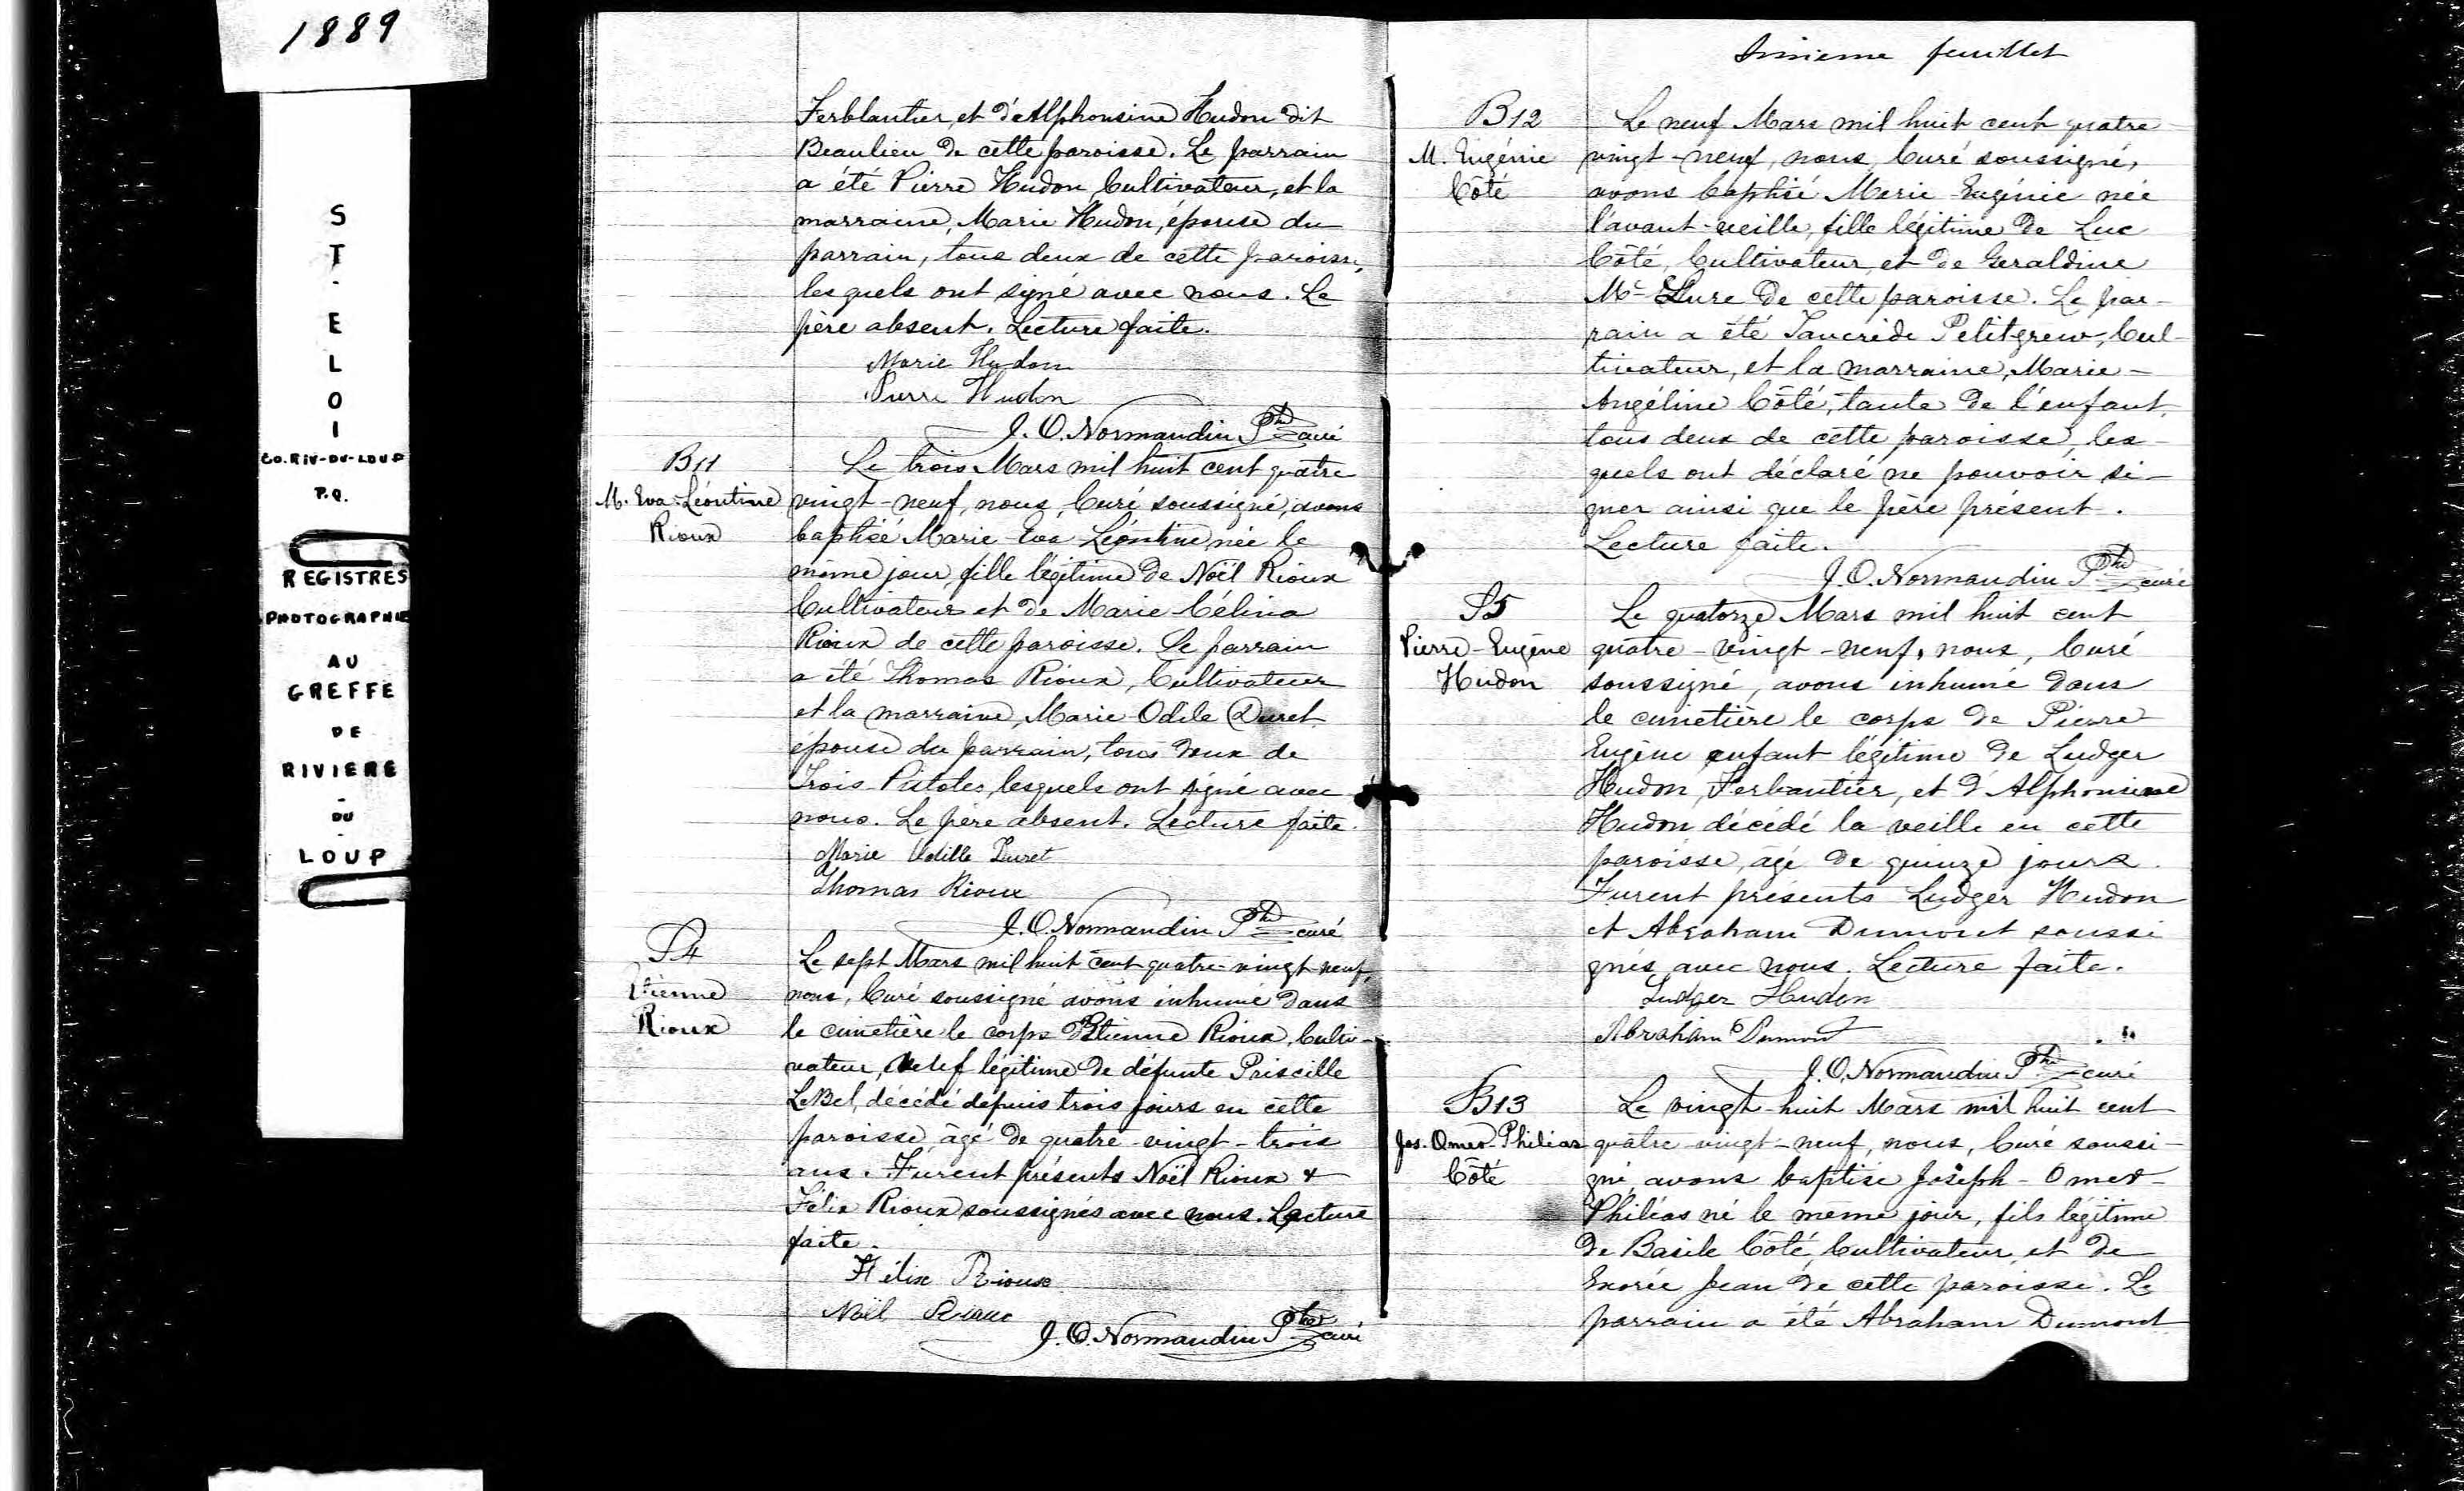 1889
ST-ELOI
CO. RIV-DU-LOUP
P.Q.
REGISTRES
PHOTOGRAPHIE
AU
GREFFE
DE
RIVIERE
-
DU
-
LOUP
Ferblantier, et d'Alphonsine Hudon dit
Beaulieu de cette paroisse. Le parrain
a été Pierre Hudon, Cultivateur, et la
marraine, Marie Hudon, épouse du
parrain, tous deux de cette paroisse,
lesquels ont signé avec nous. Le
père absent. Lecture faite.
Marie Hudon
Pierre Hudon
J. O. Normandin Ptre curé
B11
M. Eva-Léontine
Rioux
Le trois Mars mil huit cent quatre
vingt-neuf, nous, Curé soussigné, avons
baptisé Marie Eva Léontine née le
même jour, fille légitime de Noël Rioux
Cultivateur et de Marie-Célina
Rioux de cette paroisse. Le parrain
a été Thomas Rioux, Cultivateur
et la marraine, Marie-Odile Duret
épouse du parrain, tous deux de
Trois-Pistoles, lesquels ont signé avec
nous. Le père absent. Lecture faite.
Marie Odille Duret
Thomas Rioux
J. O. Normandin Ptre curé
S4
Etienne
Rioux
Le sept Mars mil huit cent quatre-vingt neuf,
nous, Curé soussigné avons inhumé dans
le cimetière le corps d'Etienne Rioux, Culti-
vateur, veuf légitime de défunte Priscille
LeBel, décédé depuis trois jours en cette
paroisse, âgé de quatre-vingt-trois
ans. Furent présents Noël Rioux &
Félix Rioux soussignés avec nous. Lecture
faite.
Félix Rioux
Noël Rioux
J. O. Normandin Ptre curé
feuillet
B12
M. Eugénie
Côté
Le neuf Mars mil huit cent quatre-
vingt-neuf, nous, Curé soussigné,
avons baptisé Marie-Eugénie née
l'avant-veille, fille légitime de Luc
Côté, Cultivateur, et de Geraldine
de cette paroisse. Le par-
rain a été Tancrède Petitgrew, Cul-
tivateur, et la marraine, Marie-
Angéline Côté, tante de l'enfant,
tous deux de cette paroisse, les-
quels ont déclaré ne pouvoir si-
gner ainsi que le père présent.
Lecture faite.
J. O. Normandin Ptre curé
S5
Pierre-Eugène
Hudon
Le quatorze Mars mil huit cent
quatre-vingt-neuf, nous, Curé
soussigné, avons inhumé dans
le cimetière le corps de Pierre
Eugène enfant légitime de Ludger
Hudon, Ferbantier, et d'Alphonsine
Hudon décédé la veille en cette
paroisse, âgé de quinze jours.
Furent présents Ludger Hudon
et Abraham Dumont soussi
gnés avec nous. Lecture faite.
Ludger Hudon
Abraham Dumont
J. O. Normandin Ptre curé
B13
Jos. Omer-Philias
Côté
Le vingt-huit Mars mil huit cent
quatre-vingt-neuf, nous, Curé soussi-
gné avons baptisé Joseph-Omer-
Philias né le même jour, fils légitime
de Basile Côté, Cultivateur, et de
Exorée Jean de cette paroisse. Le
parrain a été Abraham Dumont